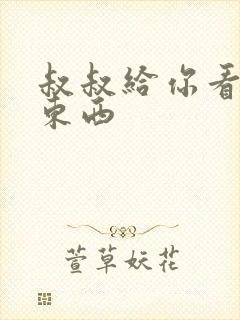 叔叔給你看
東西
萱草妖花